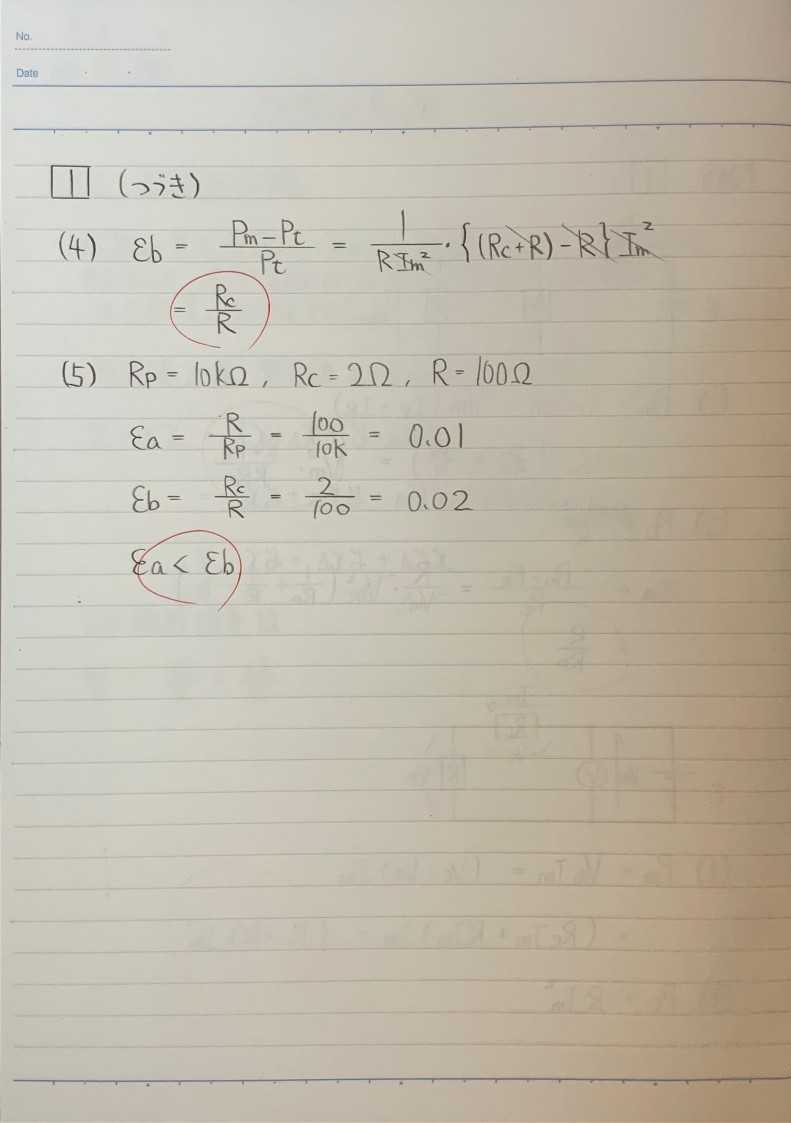 No.
Date
1 (つづき)
(4) εb = (Pm-Pt)/Pt = 1/(RIm²)・{(Rc+R)-R}Im²
= Rc/R
(5) Rp = 10kΩ, Rc = 2Ω, R = 100Ω
εa = R/Rp = 100/10k = 0.01
εb = Rc/R = 2/100 = 0.02
εa < εb